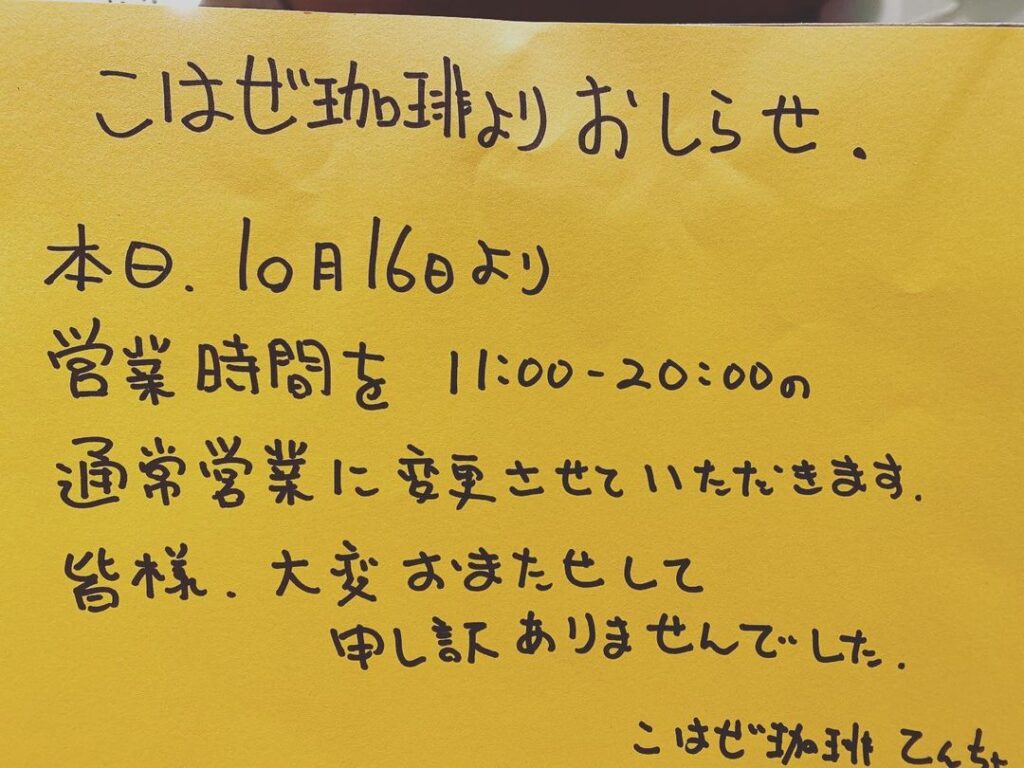 こはぜ珈琲よりおしらせ.
本日. 10月16日より
営業時間を 11:00-20:00の
通常営業に変更させていただきます.
皆様. 大変おまたせして
申し訳ありませんでした.
こはぜ珈琲 てんちょ